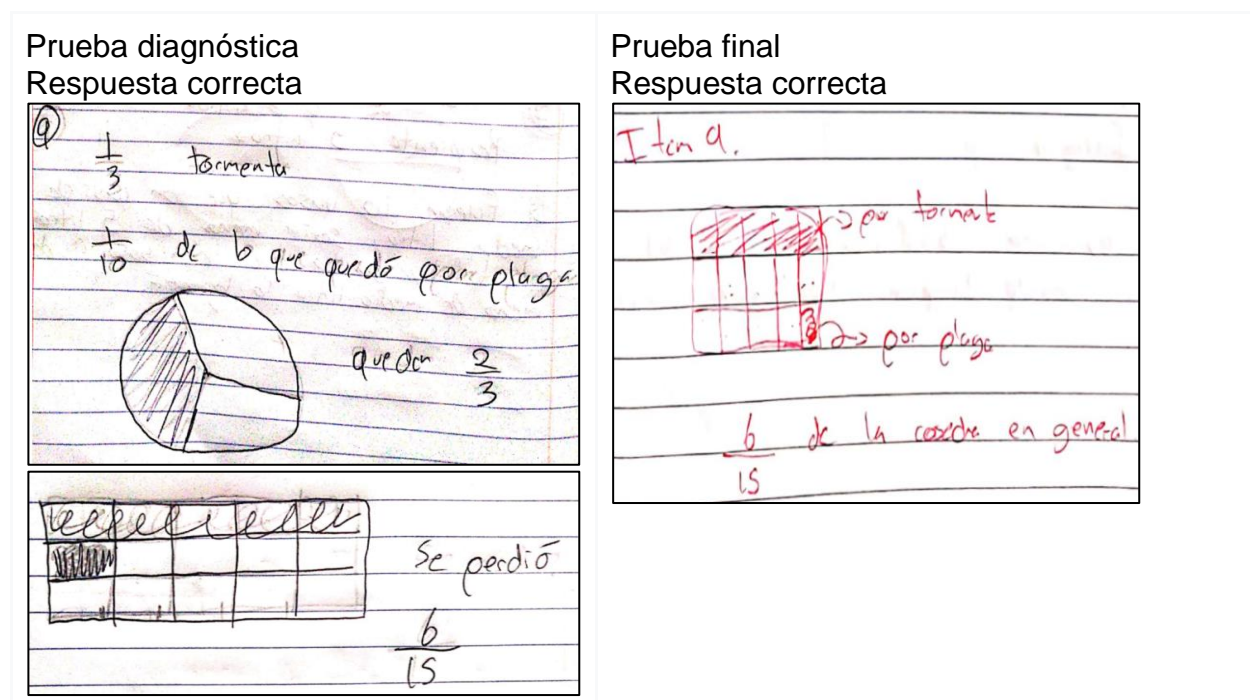 Prueba diagnóstica
Respuesta correcta
9
1/3 tormenta
1/10 de lo que quedó por plaga
quedan 2/3
Se perdió
6/15
Prueba final
Respuesta correcta
Item 9.
por
por plaga
6/15 de la cosecha en general